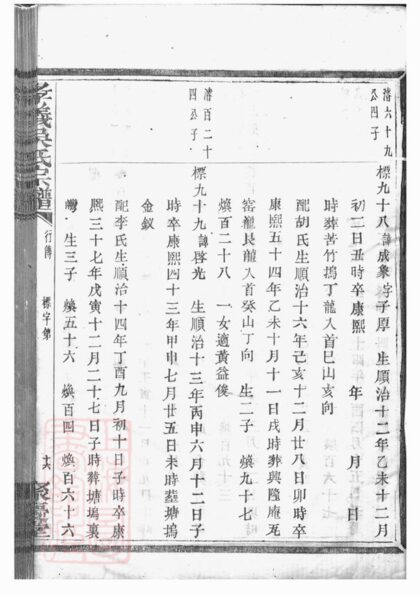 清六十九
公四子
標九十八諱成象字子厚　生順治十二年乙未十二月
初二日丑時卒康熙　年　月　日
時葬苦竹塢丁龍入首巳山亥向
配胡氏生順治十六年己亥十二月廿八日卯時卒
康熙五十四年乙未十月十一日戌時葬興隆庵瓦
窑龍艮龍入首癸山丁向　生二子　煥九十七
煥百二十八　一女適黃益俊
清百二十
四公子
標九十九諱啓光　生順治十三年丙申六月十二日子
時卒康熙四十三年甲申七月廿五日未時葬塘塢
金釵
配李氏生順治十四年丁酉九月初十日子時卒康
熙三十七年戊寅十二月二十七日子時葬塘塢裏
灣　生三子　煥五十六　煥百四　煥百六十六
孝義吳氏宗譜
行傳
標字第
十六